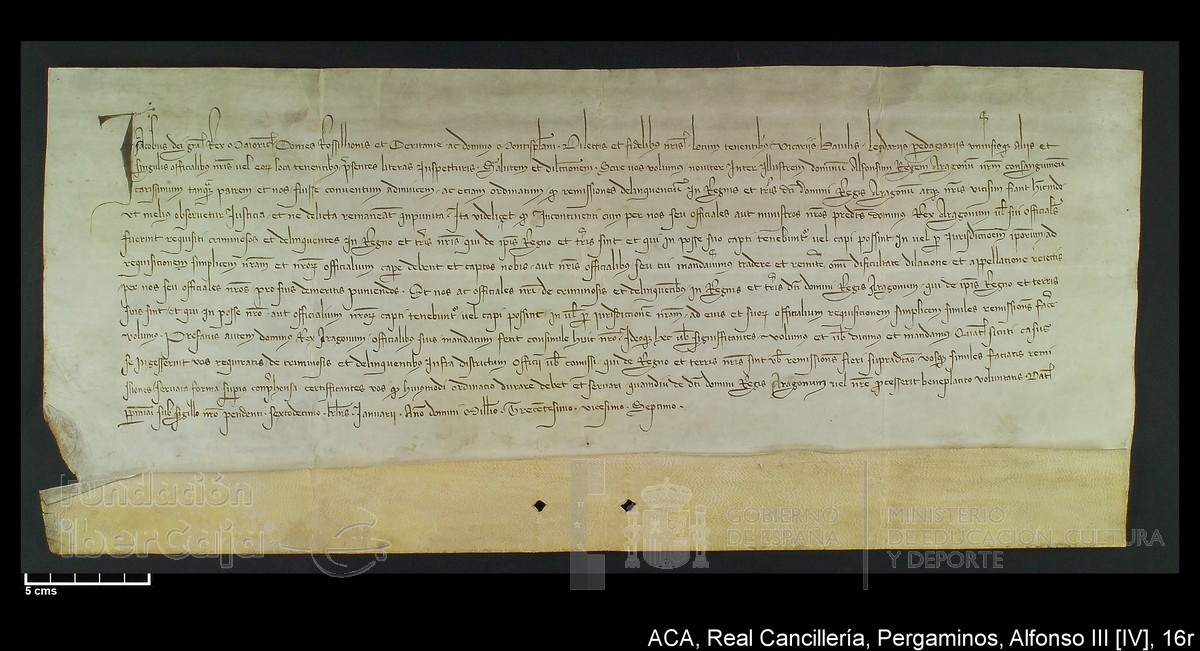 Jacobus dei gra Rex Maioric Comes Rossilionis et Ceritanie ac dominus Montispli Dilectis et fidelibus nris locum tenentibus vicariis Baiulis ac aliis et
singulis officialibus nris vel eor loca tenentibus presentes literas inspecturis Salutem et dilectionem Scire vos volumus noviter inter Illustrem dominum Alfonsum Regem Aragonum nrm consanguineum
carissimum tanqm patrem et nos fuisse conventum ad invicem ac etiam ordinatum qd remissiones delinquentium in Regnis et tris dci domini Regis Aragonum atqz nris vicissim fiant hincinde
ut melius observetur Justicia et ne delicta remaneant inpunita Ita videlicet qd Incontinenti cum per nos seu officiales aut ministros nros predcus dominus Rex Aragonum vel sui officiales
fuerint requisiti criminosos et delinquentes in Regno et tris nris qui de ipis Regno et tris sint et qui in posse suo capti tenebuntur vel capi possint in vel per Jurisdictionem ipsorum ad
requisitionem simplicem nram et nror officialium capere debent et captos nobis aut nris officialibus seu cui mandaverimus tradere et remittere omi dificultate dilacione et appellatione reiectis
per nos seu officiales nros pro suis demeritis puniendos Et nos ac officiales nri de criminosis et delinquentibus in Regnis et tris dci domini Regis Aragonum qui de ipis Regno et terris
suis sint et qui in posse nro aut officialium nror capti tenebuntur vel capi possint in vel per Jurisdictionem nram ad eius et suor officialium requisitionem simplicem similes remissiones facere
volumus Prefatus autem dominus Rex Aragonum officialibus suis mandatum fecit consimile huic nro Ideoqz hec vobis significantes volumus et vobis dicimus et mandamus Quatenus sicuti casus
se ingesserit vos requiratis de criminosis et delinquentibus infra districtum officii vobis comissi qui de Regno et terris nris sint vobis remissiones fieri supradictas vosqz similes faciatis remi
ssiones servata forma superius comprehensa certifficantes vos qd huiusmodi ordinacio durare debet et servari quamdiu de dci domini Regis Aragonum vel nre processerit beneplacito voluntatis Dat
Perpiniani sub sigillo nro pendenti sextodecimo klns Januarii Ano domini Millo Trecentesimo vicesimo Septimo
Fundación
iberCaja
GOBIERNO
DE ESPAÑA
MINISTERIO
DE EDUCACIÓN, CULTURA
Y DEPORTE
5 cms
ACA, Real Cancillería, Pergaminos, Alfonso III [IV], 16r